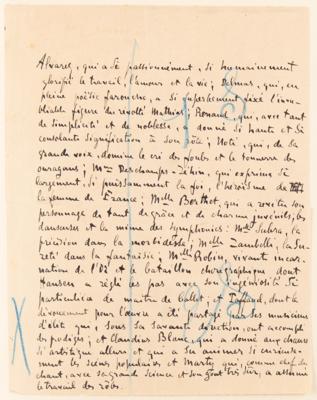 Alvarez, qui a si passionnément, si humainement
glorifié le travail, l'amour et la vie; Delmas, qui, en
pleine poésie farouche, a si superbement fixé l'inou-
bliable figure du révolté Mathias; Renaud, qui, avec tant
de simplicité et de noblesse, a donné si haute et si
consolante signification à son rôle; Noté, qui, de sa
grande voix, domine le cri des foules et le tonnerre des
ouragans; Mme Deschamps-Jehin, qui exprime si
largement, si puissamment la foi, l'héroïsme de
la femme de France; Melle Berthet, qui a revêtu son
personnage de tant de grâce et de charme juvénils, les
danseuses et la mime des symphonies: Melle Subra, la
précision dans la morbidesse; Melle Zambelli, la su-
reté dans la fantaisie; Melle Robin, vivant incar-
nation de l'Or et le bataillon chorégraphique dont
Hansen a réglé les pas avec son ingéniosité si
particulière de maître de ballet, et Taffanel, dont le
dévouement pour l'œuvre a été partagé par des musiciens
d'élite qui, sous sa savante direction, ont accompli
des prodiges; et Claudius Blanc, qui a donné aux chœurs
si artistique allure et qui a su animer si curieuse-
ment les scènes populaires et Marty qui, comme chef du
chant, avec sa grande science et son goût très sûr, a assumé
le travail des rôles.